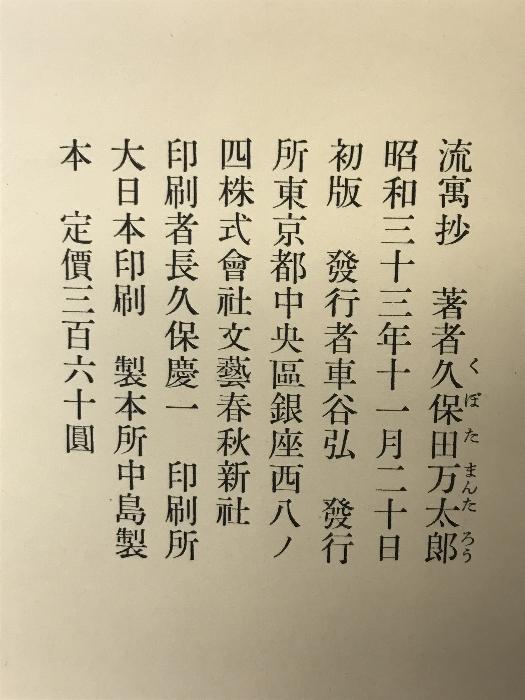 流寓抄　著者久保田万太郎
くぼた まんたろう
昭和三十三年十一月二十日
初版　發行者車谷弘　發行
所東京都中央區銀座西八ノ
四株式會社文藝春秋新社
印刷者長久保慶一　印刷所
大日本印刷　製本所中島製
本　定價三百六十圓